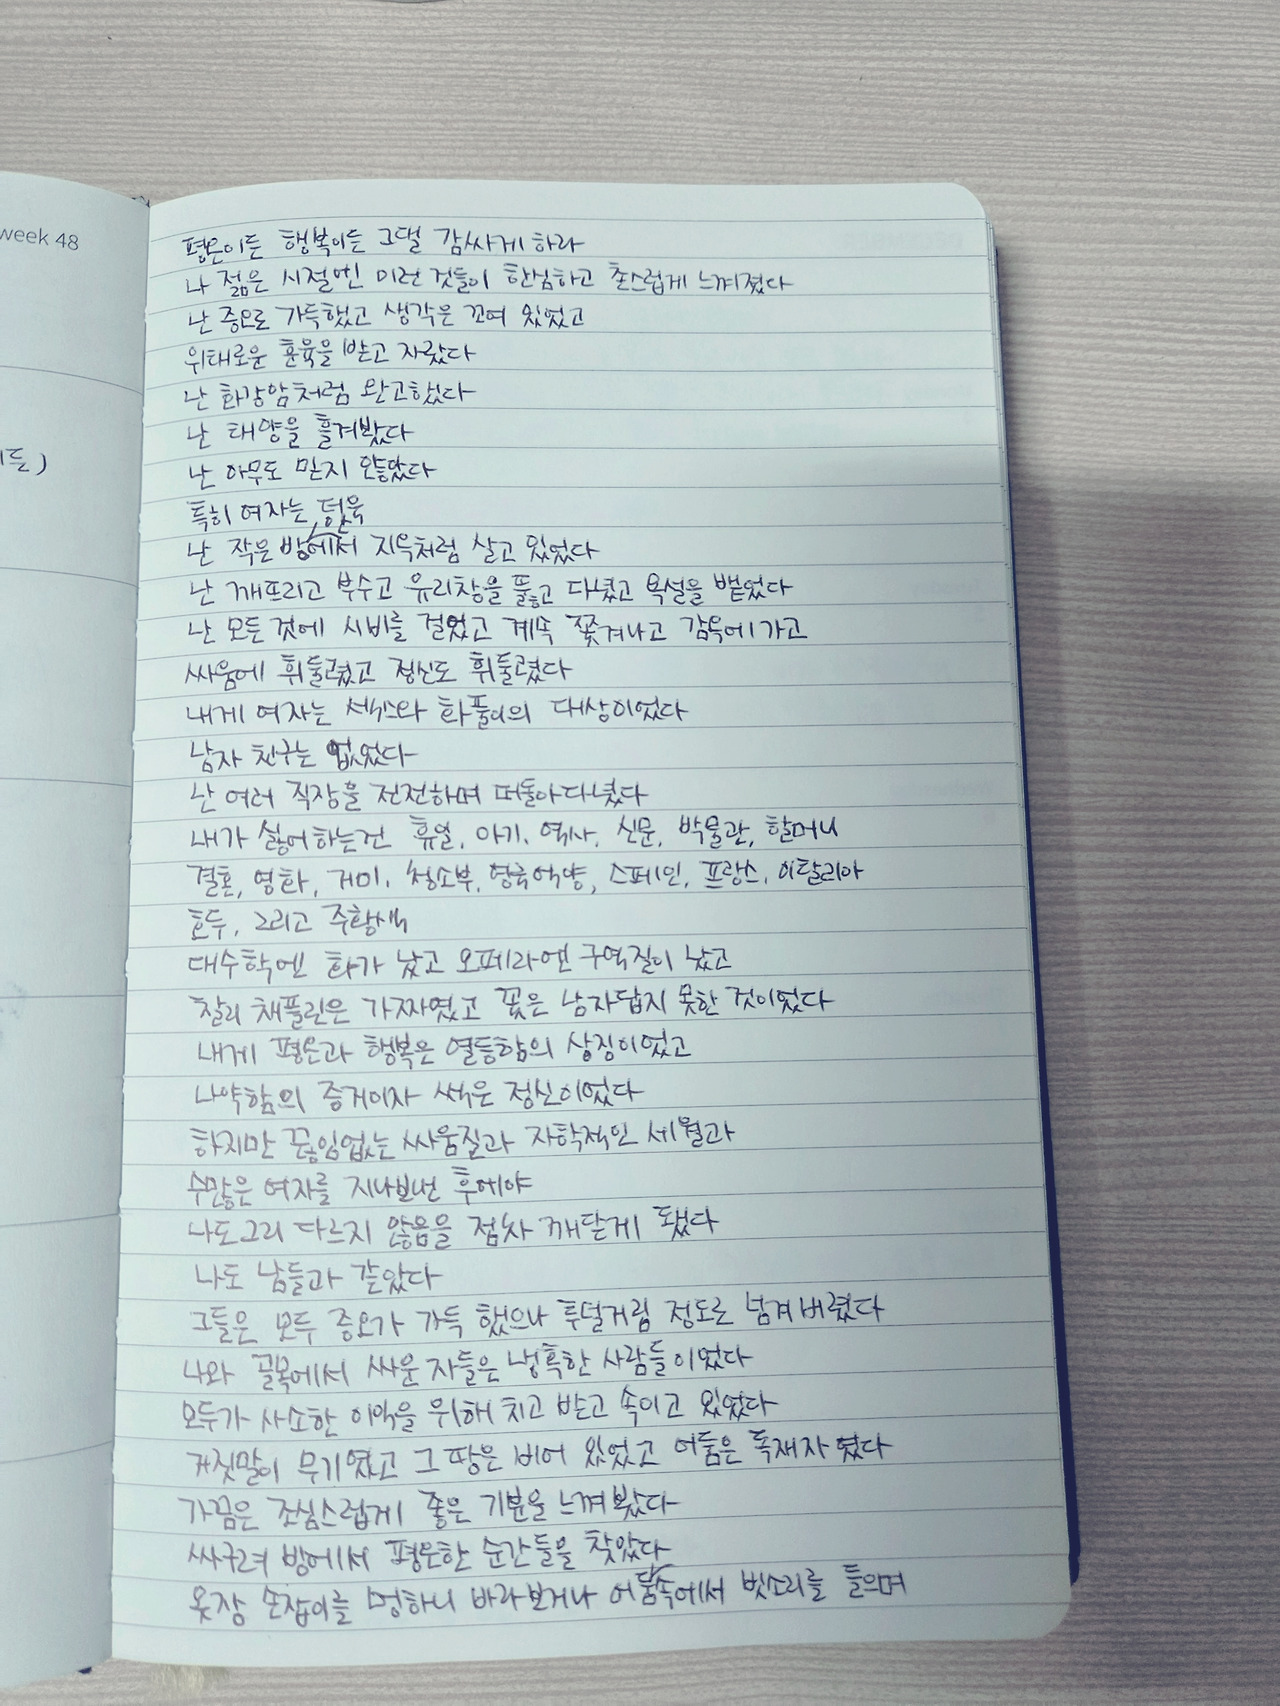 week 48
이든)
평온이든 행복이든 그댈 감싸게 하라
나 젊은 시절엔 이런 것들이 한심하고 촌스럽게 느껴졌다
난 증오로 가득했고 생각은 꼬여 있었고
위태로운 훈육을 받고 자랐다
난 화강암처럼 완고했다
난 태양을 흘겨봤다
난 아무도 믿지 않았다
특히 여자는 더욱
난 작은 방안에서 지옥처럼 살고 있었다
난 깨뜨리고 부수고 유리창을 뚫고 다녔고 욕설을 뱉었다
난 모든 것에 시비를 걸었고 계속 쫓겨나고 감옥에 가고
싸움에 휘둘렸고 정신도 휘둘렸다
내게 여자는 섹스와 화풀이의 대상이었다
남자 친구는 없었다
난 여러 직장을 전전하며 떠돌아다녔다
내가 싫어하는건 휴일, 아기, 역사, 신문, 박물관, 할머니
결혼, 영화, 거미, 청소부, 영국억양, 스페인, 프랑스, 이탈리아
호두, 그리고 주황색
대수학엔 화가 났고 오페라엔 구역질이 났고
찰리 채플린은 가짜였고 꽃은 남자답지 못한 것이었다
내게 평온과 행복은 열등함의 상징이었고
나약함의 증거이자 썩은 정신이었다
하지만 끊임없는 싸움질과 자학적인 세월과
수많은 여자를 지나보낸 후에야
나도 그리 다르지 않음을 점차 깨닫게 됐다
나도 남들과 같았다
그들은 모두 증오가 가득 했으나 투덜거림 정도로 넘겨버렸다
나와 골목에서 싸운 자들은 냉혹한 사람들이었다
모두가 사소한 이익을 위해 치고 받고 속이고 있었다
거짓말이 무기였고 그 땅은 비어 있었고 어둠은 독재자였다
가끔은 조심스럽게 좋은 기분을 느껴봤다
싸구려 방에서 평온한 순간들을 찾았다
옷장 손잡이를 멍하니 바라보거나 어둠속에서 빗소리를 들으며